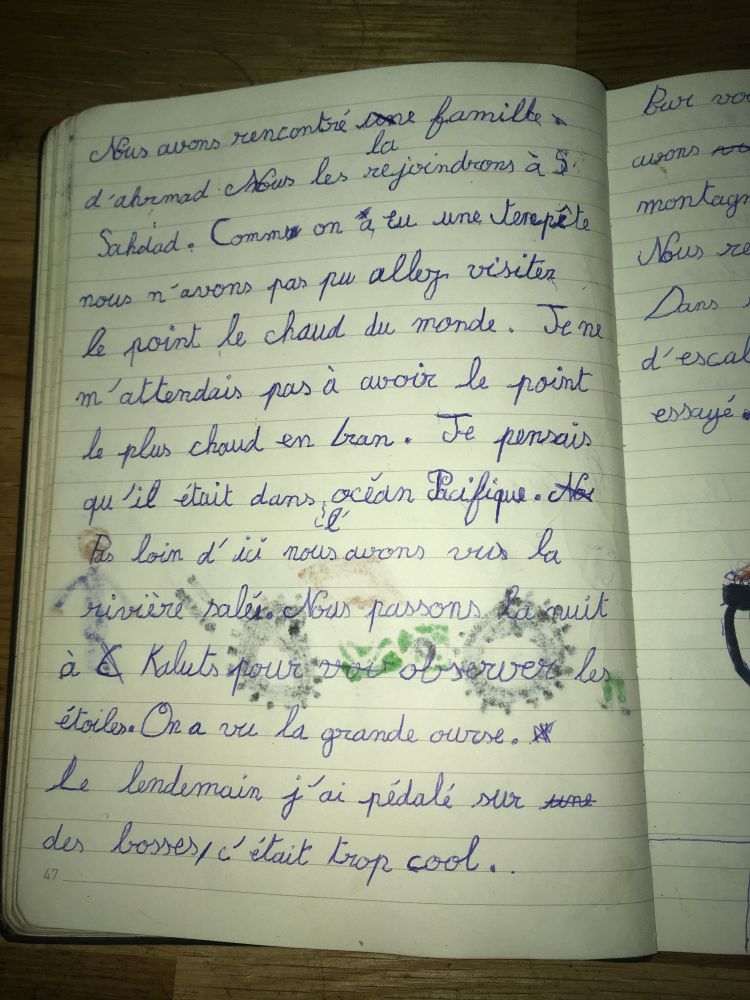 Nous avons rencontré la famille
d'ahrmad. Nous les rejoindrons à
Sahdad. Comme on a eu une tempête
nous n'avons pas pu allez visitez
le point le chaud du monde. Je ne
m'attendais pas à avoir le point
le plus chaud en Iran. Je pensais
qu'il était dans l'océan Pacifique.
Pas loin d'ici nous avons vus la
rivière salée. Nous passons la nuit
à Kaluts pour observer les
étoiles. On a vu la grande ourse.
Le lendemain j'ai pédalé sur
des bosses, c'était trop cool..
47
Pour
avons
montagn
Nous re
Dans
d'escal
essayé.